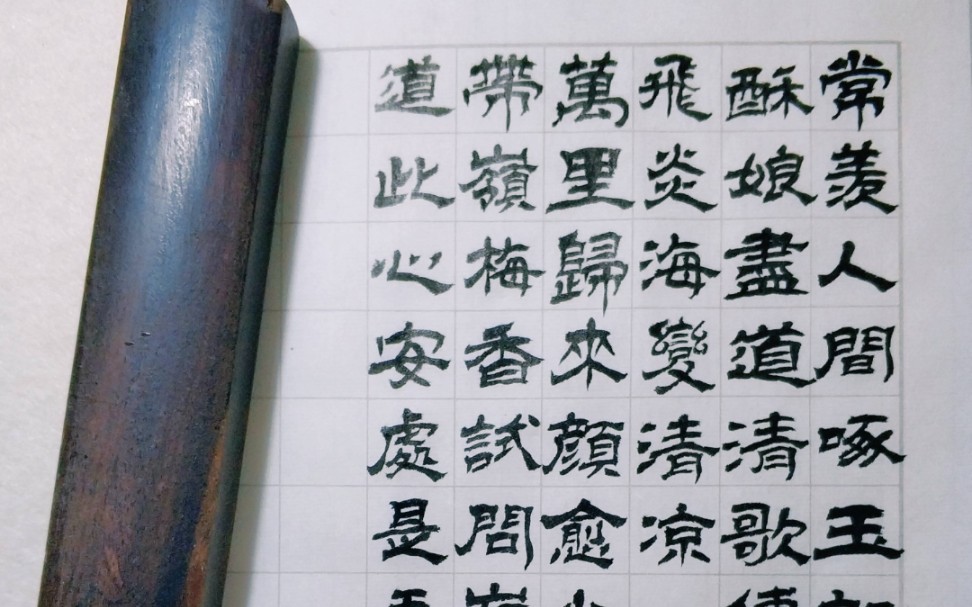 常羨人間啄玉
酥娘盡道清歌
飛炎海變清凉
萬里歸來顏愈
帶嶺梅香試問
道此心安處是